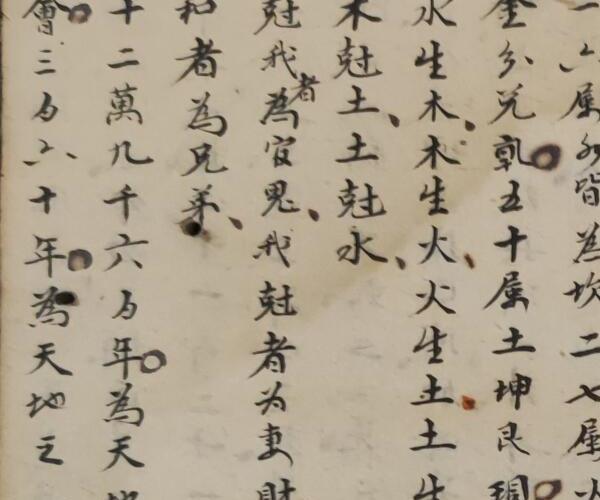 一六屬水皆為坎二七屬火
金分兌乹五十屬土坤艮
水生木木生火火生土土生
木尅土土尅水
尅我者為官鬼我尅者为妻財
和者為兄弟
十二萬九千六百年為天地
會三百六十年為天地之